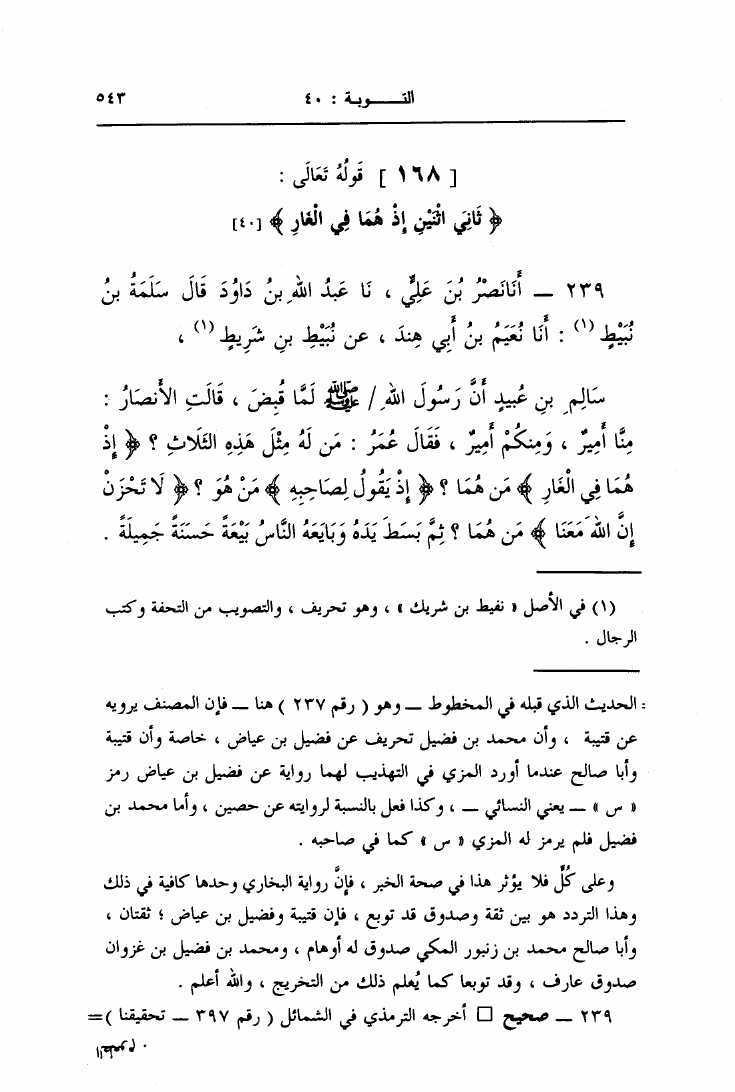 التـــوبـة : ٤٠ ٥٤٣
[ ١٦٨ ] قَولُهُ تَعَالَى :
﴿ ثَانِيَ اثْنَيْنِ إِذْ هُمَا فِي الْغَارِ ﴾ [٤٠]
٢٣٩ ــ أَنَانَصْرُ بُنَ عَلِيٍّ ، نَا عَبدُ اللهِ بنُ دَاوُدَ قَالَ سَلَمَةُ بنُ
نُبَيْطٍ (١) : أَنَا نُعَيمُ بنُ أَبِي هِندَ ، عن نُبَيْطِ بنِ شَرِيطٍ (١) ،
سَالِمِ بنِ عُبيدٍ أَنَّ رَسُولَ اللهِ / ﷺ لَمَّا قُبِضَ ، قَالَتِ الأَنصَارُ :
مِنَّا أَمِيرٌ ، وَمِنكُمْ أَمِيرٌ ، فَقَالَ عُمَرُ : مَن لَهُ مِثْلَ هَذِهِ الثَّلَاثِ ؟ ﴿ إِذْ
هُمَا فِي الْغَارِ ﴾ مَن هُمَا ؟ ﴿ إِذْ يَقُولُ لِصَاحِبِهِ ﴾ مَنْ هُوَ ؟ ﴿ لَا تَحْزَنْ
إِنَّ اللهَ مَعَنَا ﴾ مَن هُمَا ؟ ثِمَّ بَسَطَ يَدَهُ وَبَايَعَهُ النَّاسُ بَيْعَةً حَسَنَةً جَمِيلَةً .
(١) في الأصل « نفيط بن شريك » ، وهو تحريف ، والتصويب من التحفة وكتب
الرجال .
: الحديث الذي قبله في المخطوط ــ وهو ( رقم ٢٣٧ ) هنا ــ فإن المصنف يرويه
عن قتيبة ، وأن محمد بن فضيل تحريف عن فضيل بن عياض ، خاصة وأن قتيبة
وأبا صالح عندما أورد المزي في التهذيب لهما رواية عن فضيل بن عياض رمز
« س » ــ يعني النسائي ــ ، وكذا فعل بالنسبة لروايته عن حصين ، وأما محمد بن
فضيل فلم يرمز له المزي « س » كما في صاحبه .
وعلى كُلٍّ فلا يؤثر هذا في صحة الخبر ، فإنَّ رواية البخاري وحدها كافية في ذلك
وهذا التردد هو بين ثقة وصدوق قد توبع ، فإن قتيبة وفضيل بن عياض ؛ ثقتان ،
وأبا صالح محمد بن زنبور المكي صدوق له أوهام ، ومحمد بن فضيل بن غزوان
صدوق عارف ، وقد توبعا كما يُعلم ذلك من التخريج ، والله أعلم .
٢٣٩ ــ صحيح □ أخرجه الترمذي في الشمائل ( رقم ٣٩٧ ــ تحقيقنا )=